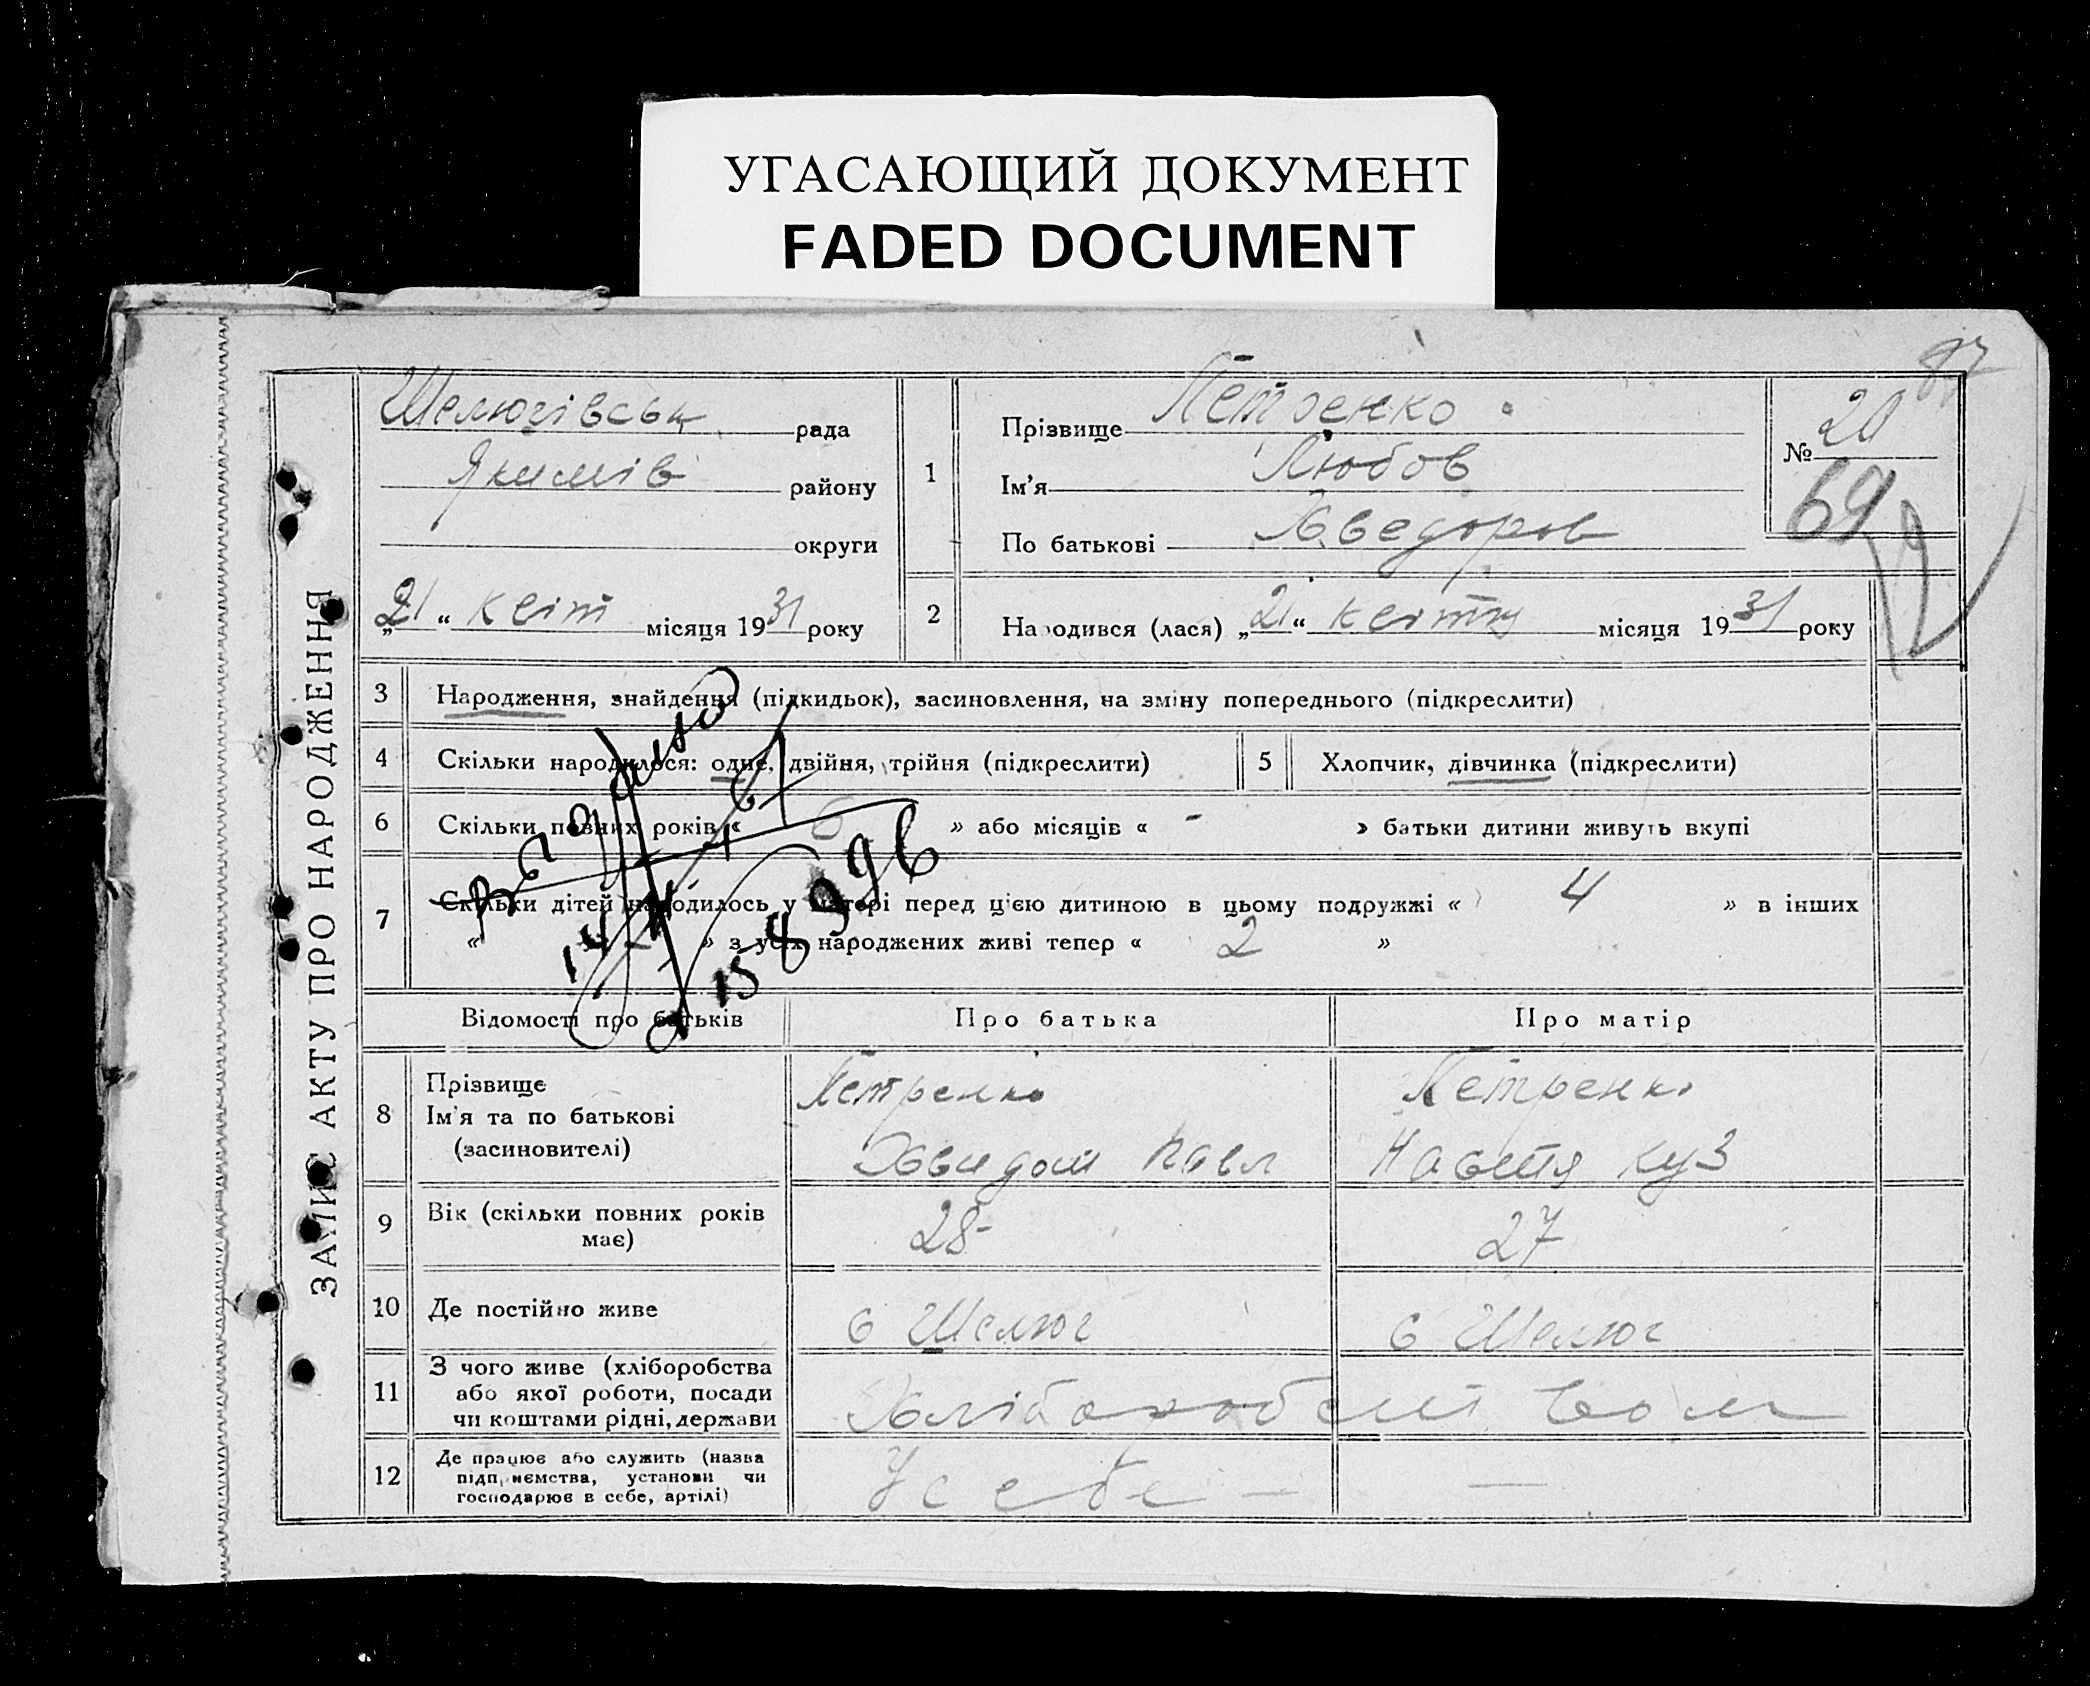 УГАСАЮЩИЙ ДОКУМЕНТ
FADED DOCUMENT
87
ЗАПИС АКТУ ПРО НАРОДЖЕННЯ
Шелюгівськ рада
Якимів району
округи
„21“ квіт місяця 1931 року
1
Прізвище Петренко
Ім'я Любов
По батькові Хведоров
№ 20
69
2 Народився (лася) „21“ квітн місяця 1931 року
3 Народження, знайдення (підкидьок), засиновлення, на зміну попереднього (підкреслити)
4 Скільки народилося: одне, двійня, трійня (підкреслити)
5 Хлопчик, дівчинка (підкреслити)
6 Скільки повних років « 6 » або місяців « - » батьки дитини живуть вкупі
7 Скільки дітей народилось у матері перед цією дитиною в цьому подружжі « 4 » в інших
« » з усіх народжених живі тепер « 2 »
Відомості про батьків Про батька Про матір
8 Прізвище
Ім'я та по батькові
(засиновителі)
Петренко
Павл
Петренко
Настя Куз
9 Вік (скільки повних років
має)
28
27
10 Де постійно живе
с Шелюг
с Шелюг
11 З чого живе (хліборобства
або якої роботи, посади
чи коштами рідні, держави
Хліборобством
12 Де працює або служить (назва
підприємства, установи чи
господарює в себе, артілі)
У себе —
—